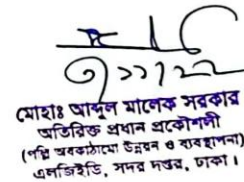 মোহাঃ আব্দুল মালেক সরকার
অতিরিক্ত প্রধান প্রকৌশলী
(পল্লি অবকাঠামো উন্নয়ন ও ব্যবস্থাপনা)
এলজিইডি, সদর দপ্তর, ঢাকা।